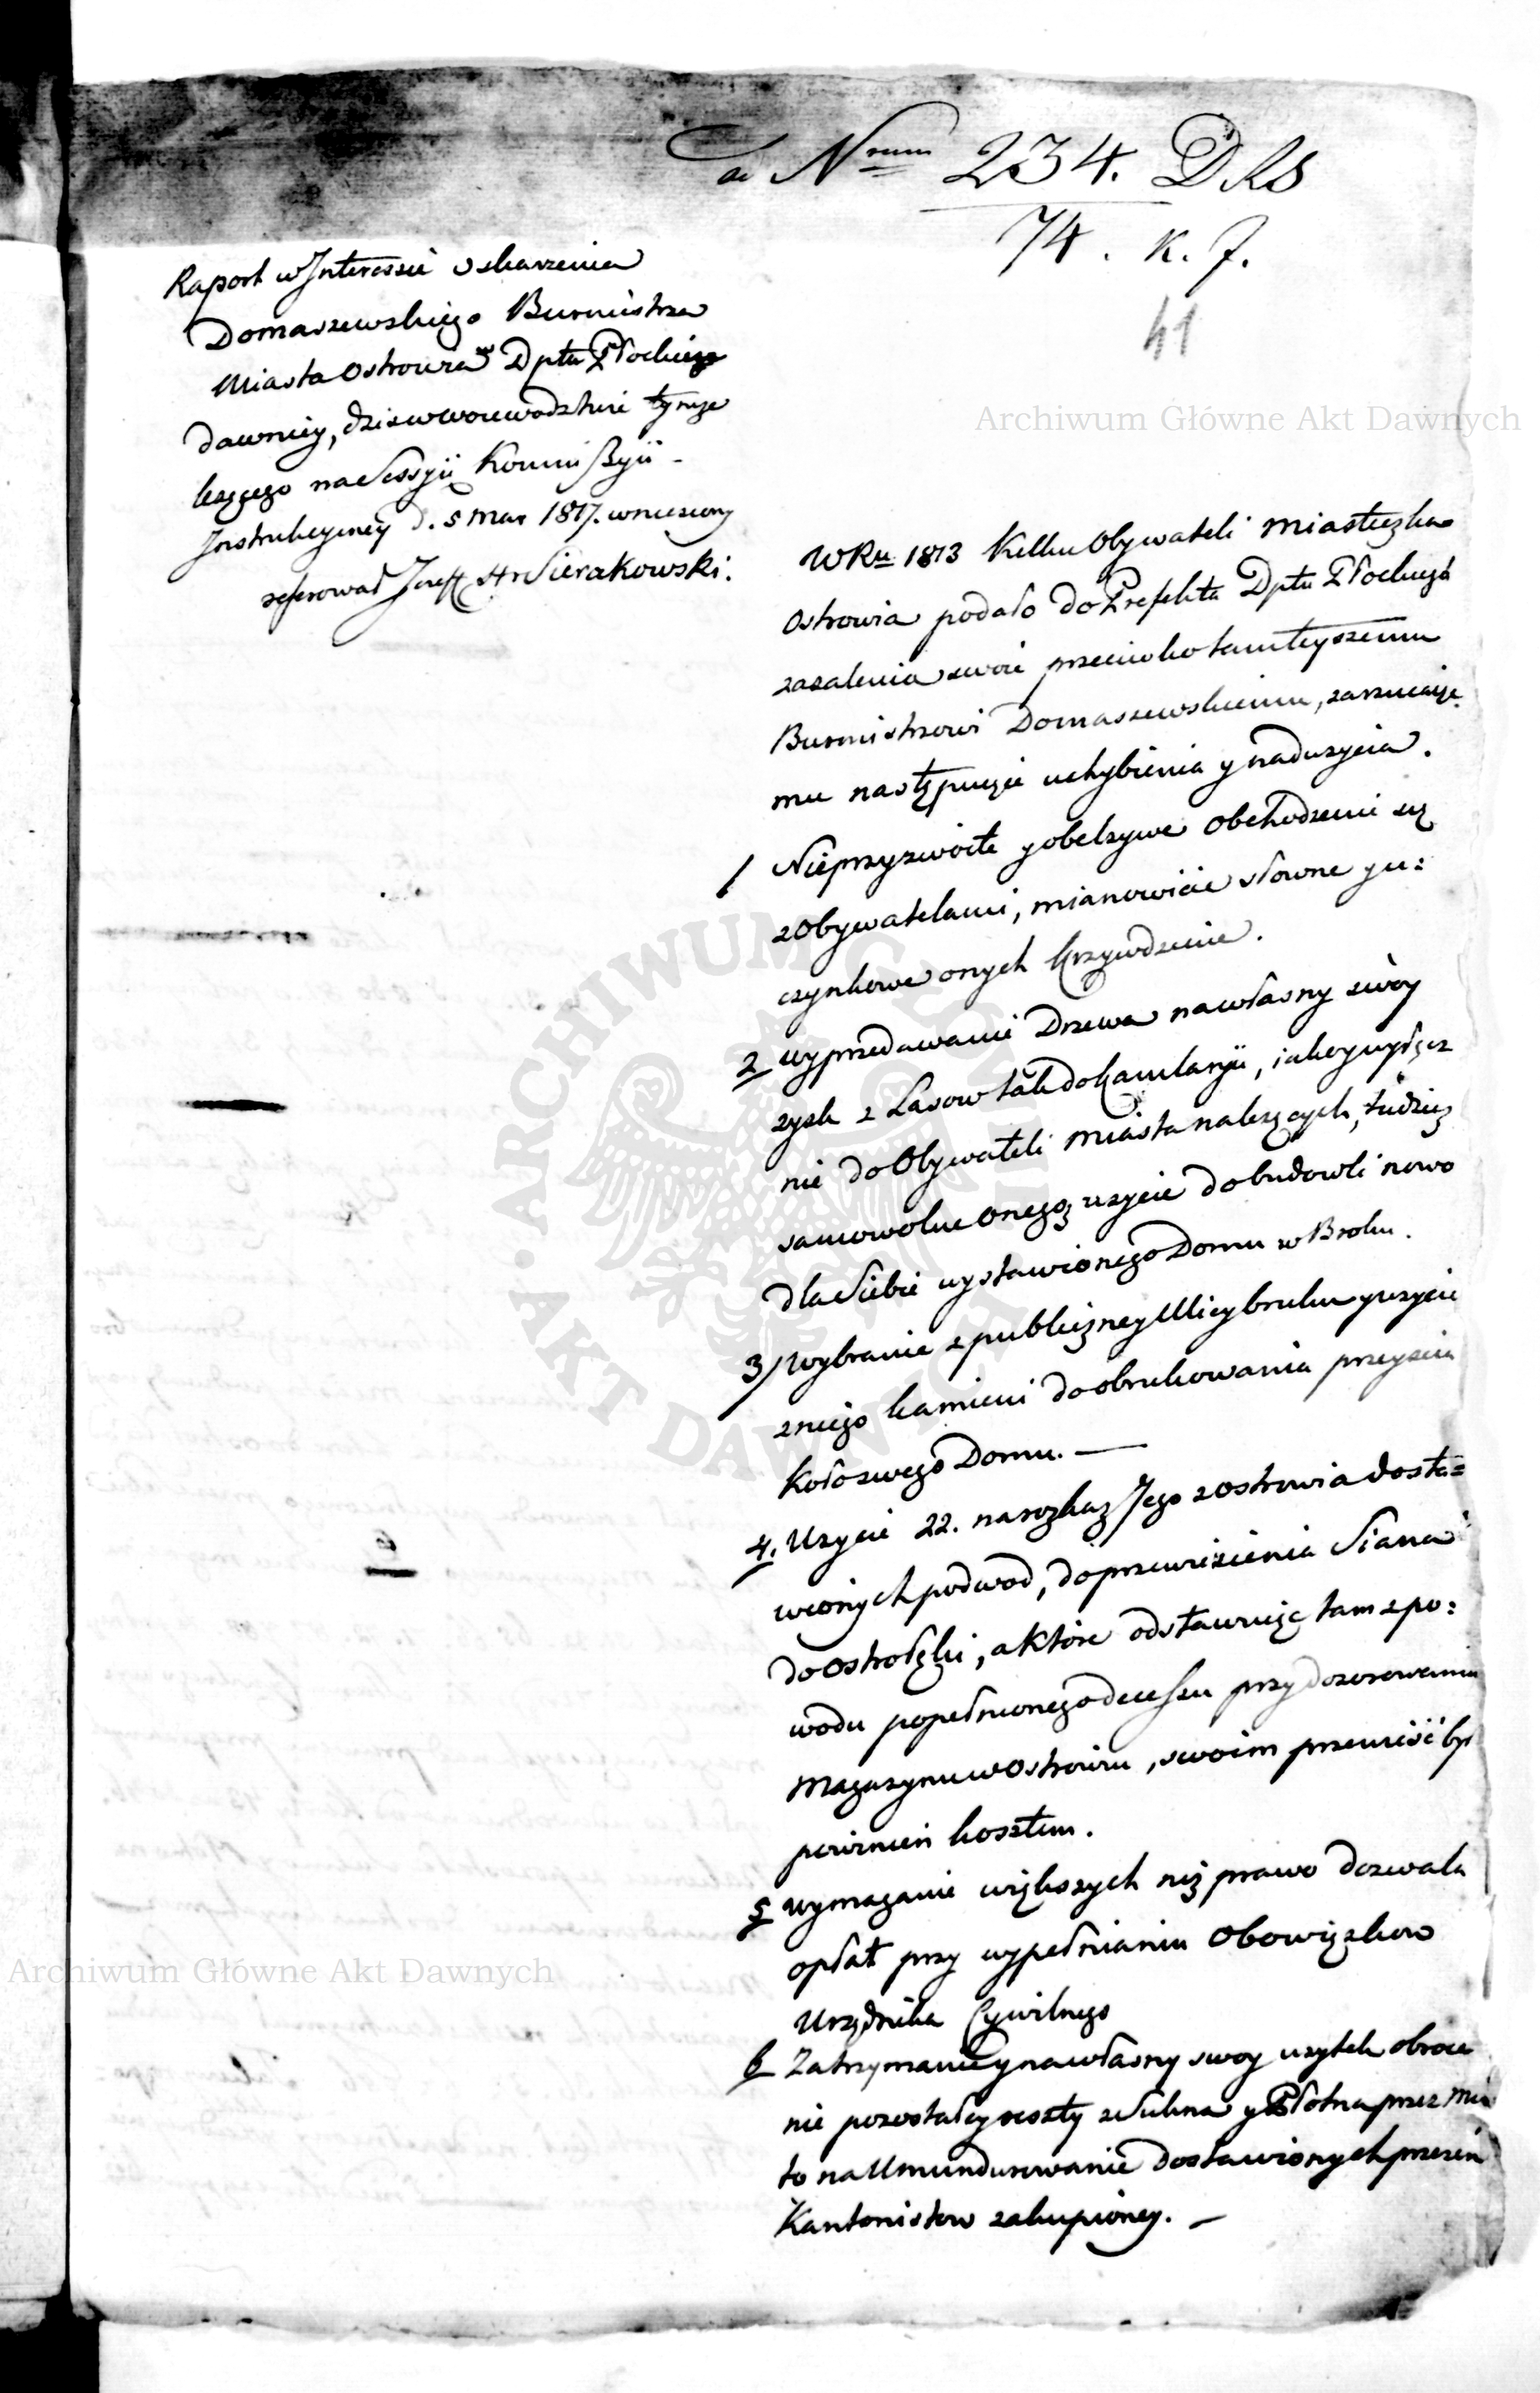 ad Nrum 234. DRS
74. K. J.
41
Archiwum Główne Akt Dawnych
Raport w Interessie oskarzenia
Domaszewskiego Burmistrza
Miasta Ostrowia Dptu Płockiego
dawniey, dzis w wojewodztwie tymze
leżącego na Sessyii Kommissyii
Instrukcyiney d. 5 Mar 1817. wniesiony
referował Jozeff Hr Sierakowski.
W Ru 1813 Kilku Obywateli Miasteczka
Ostrowia podało do Prefekta Dptu Płockiego
zazalenia swoie przeciwko tamteyszemu
Burmistrzowi Domaszewskiemu, zarzucaiąc
mu następuiące uchybienia y nadużycia.
1 Nieprzyzwoite y obelzywe obchodzenie się
z Obywatelami, mianowicie słowne y u=
czynkowe onych krzywdzenie.
2 wyprzedawanie Drzewa na własny swóy
zysk z Lasow tak do Kamlaryi, iako y wyłącz
nie do Obywateli Miasta należących, tudzież
samowolne onegoż uzycie do budowli nowo
dla Siebie wystawionego Domu w Broku.
3/ Wybranie z publiczney Ulicy bruku y uzycie
z niego kamieni do obrukowania przeyscia
Koło swego Domu. —
4. Uzycie 22. na rozkaz Jego z Ostrowia dosta=
wionych podwod, do przewiezienia Siana
do Ostrołęki, a które odstawuiąc tam z po=
wodu popełnionego decessu przy dozorowaniu
Magazynu w Ostrowiu, swoim przewieść by
powinien kosztem.
5 Wymaganie większych niż prawo dozwala
opłat przy wypełnianiu Obowiązkow
Urzędnika Cywilnego
6 Zatrzymanie y na własny swoy uzytek obroce
nie pozostałey reszty z Sukna y Płotna przez Mia
to na Umundurowanie dostawionych przezeń
Kantonistow zakupioney. —
Archiwum Główne Akt Dawnych
ARCHIWUM GŁÓWNE AKT DAWNYCH